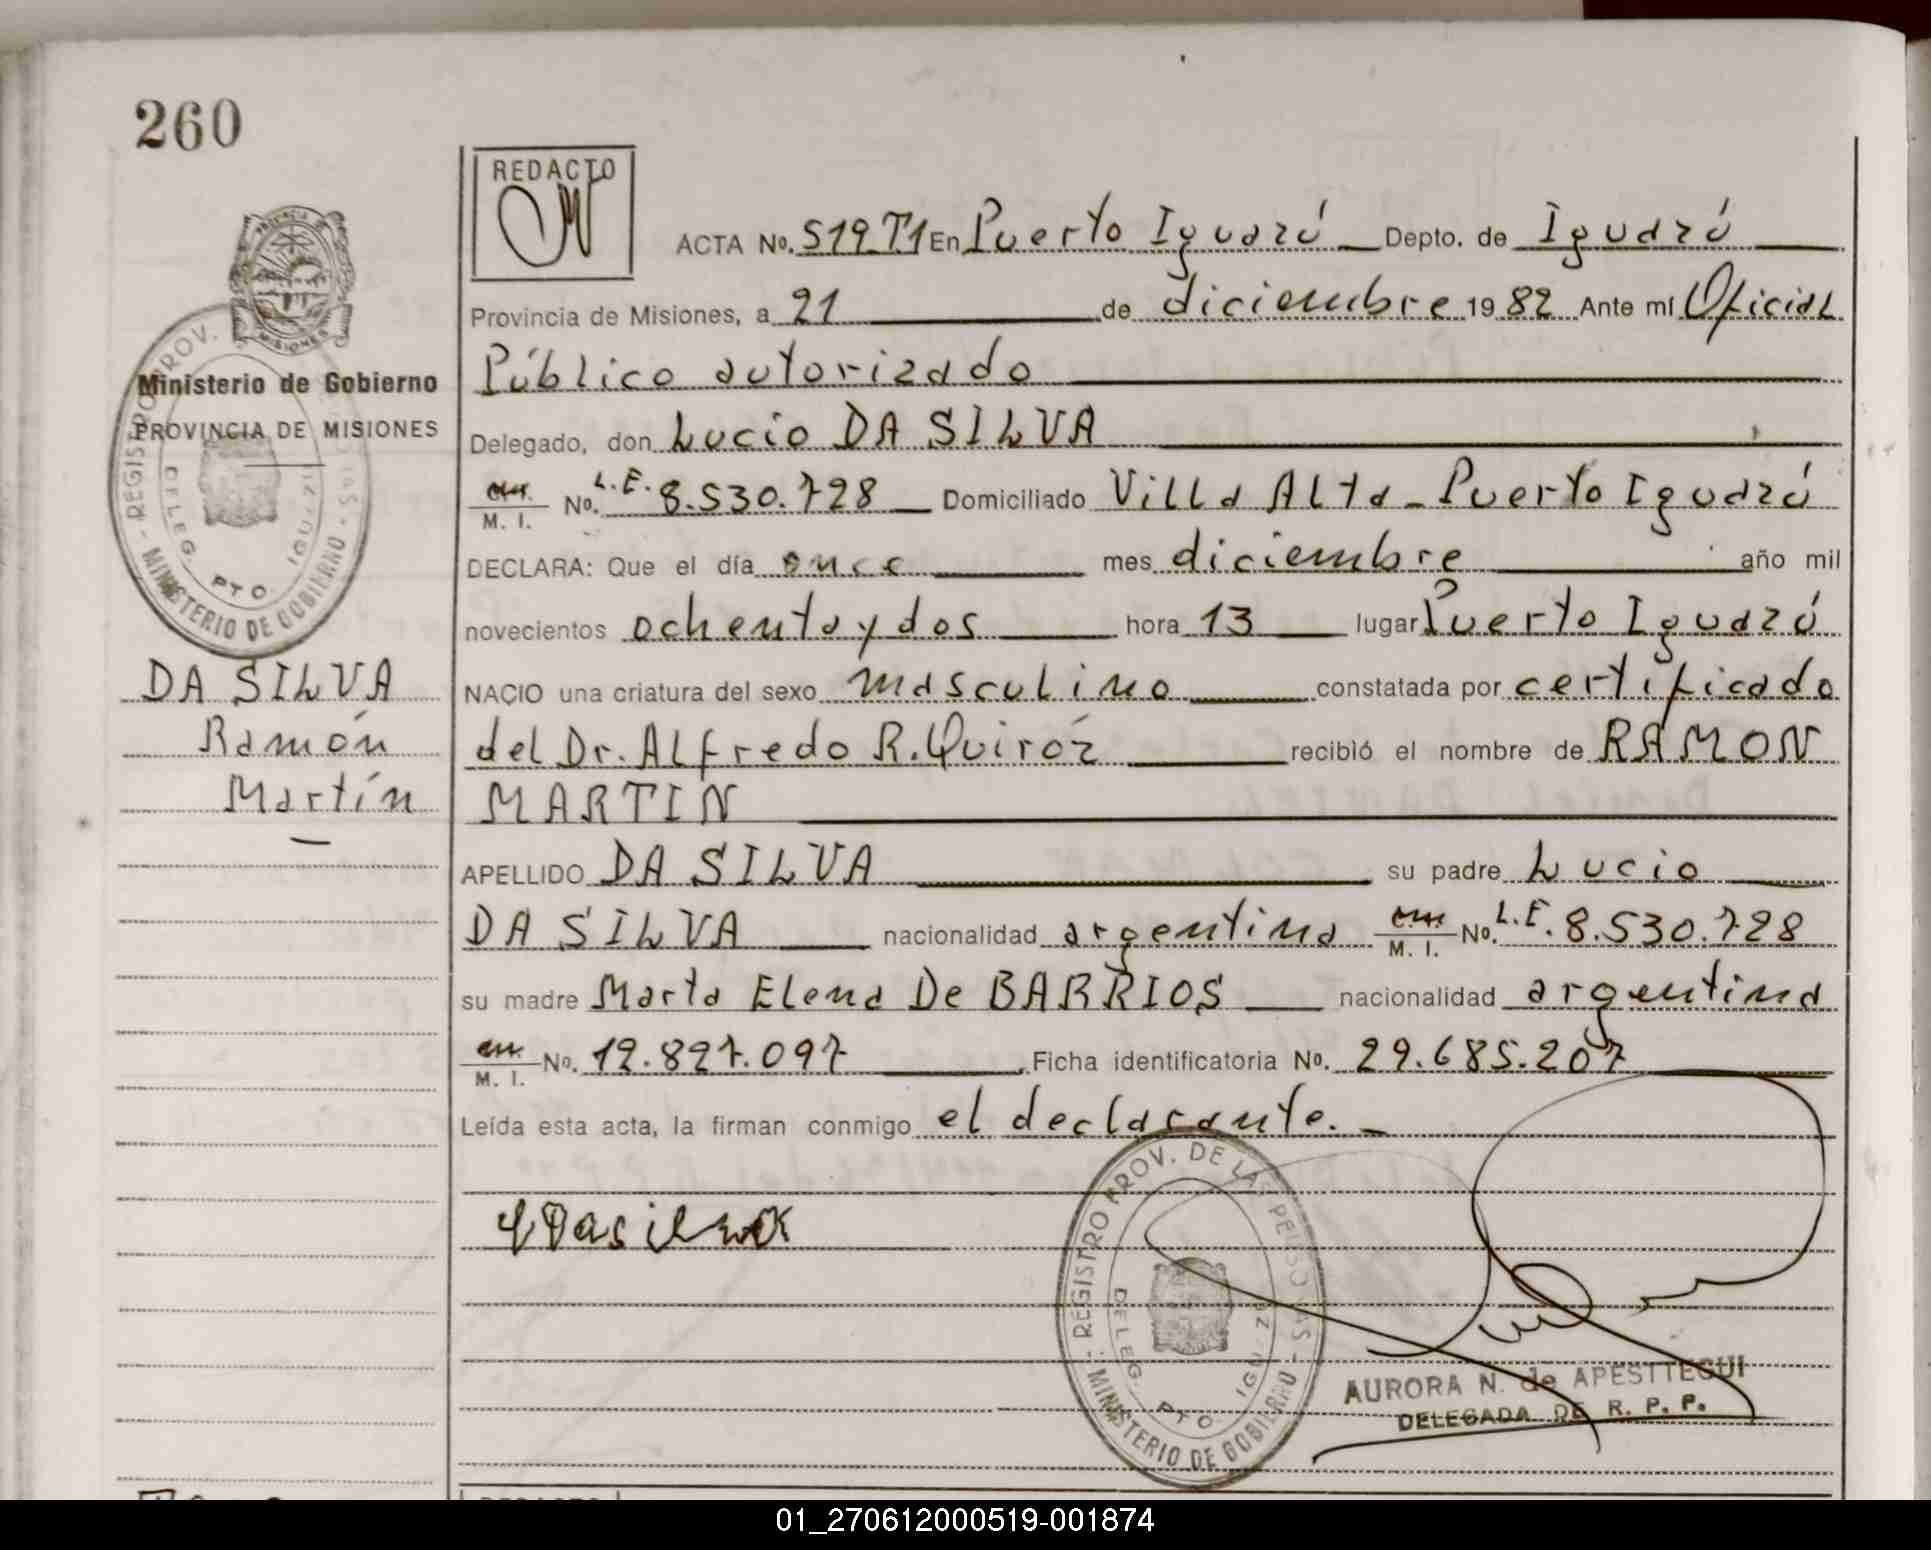 260
REDACTO
ACTA No. 519 T1 En Puerto Iguazú Depto. de Iguazú
Provincia de Misiones, a 21 de diciembre 1982 Ante mí Oficial
Público autorizado
Ministerio de Gobierno
PROVINCIA DE MISIONES
Delegado, don Lucio DA SILVA
M. I. No. L.E. 8.530.728 Domiciliado Villa Alta - Puerto Iguazú
DECLARA: Que el día once mes diciembre año mil
novecientos ochenta y dos hora 13 lugar Puerto Iguazú
DA SILVA
Ramón
Martín
NACIO una criatura del sexo masculino constatada por certificado
del Dr. Alfredo R. Quiróz recibió el nombre de RAMON
MARTIN
APELLIDO DA SILVA su padre Lucio
DA SILVA nacionalidad argentina M. I. No. L.E. 8.530.728
su madre Marta Elena De BARRIOS nacionalidad argentina
M. I. No. 12.827.097 Ficha identificatoria No. 29.685.207
Leída esta acta, la firman conmigo el declarante. -
REGISTRO PROV. DE LAS PERSONAS - MINISTERIO DE GOBIERNO -
DELEG. PTO. IGUAZU
AURORA N. de APESTTEGUI
DELEGADA DE R. P. P.
01_270612000519-001874